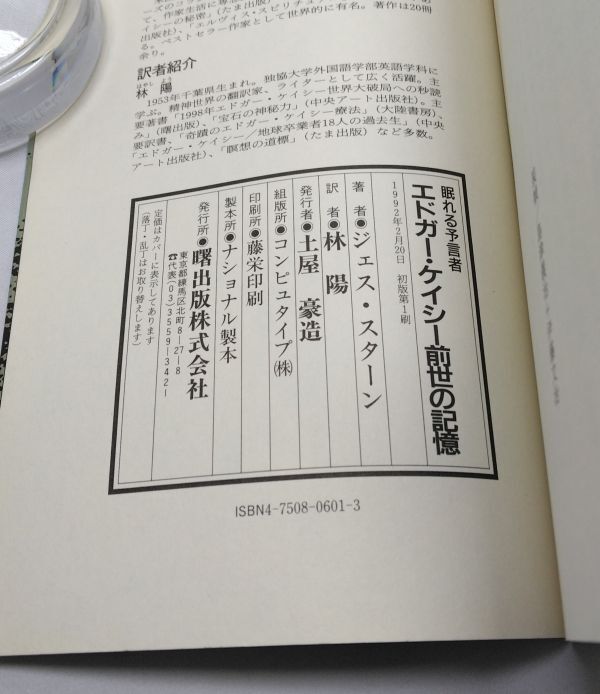 て、作家生活に専念
シーの秘密」(たま出版)
出版社)、「エルヴィス・スピリチュア
る。ベストセラー作家として世界的に有名。著作は20冊
余り。
訳者紹介
はやし よう
林 陽
1953年千葉県生まれ。独協大学外国語学部英語学科に
学ぶ。精神世界の翻訳家、ライターとして広く活躍。主
要著書「1998年エドガー・ケイシー世界大破局への秒読
み」(曙出版)、「宝石の神秘力」(中央アート出版社)。主
要訳書、「奇蹟のエドガー・ケイシー療法」(大陸書房)、
「エドガー・ケイシー/地球卒業者18人の過去生」(中央
アート出版社)、「瞑想の道標」(たま出版)など多数。
眠れる予言者
エドガー・ケイシー前世の記憶
1992年2月20日 初版第1刷
著 者●ジェス・スターン
訳 者●林 陽
発行者●土屋 豪造
組版所●コンピュタイプ㈱
印刷所●藤栄印刷
製本所●ナショナル製本
発行所●曙出版株式会社
東京都練馬区北町8-27-8
☎代表(03)3559-342-
定価はカバーに表示してあります
(落丁・乱丁はお取り替えします)
ISBN4-7508-0601-3